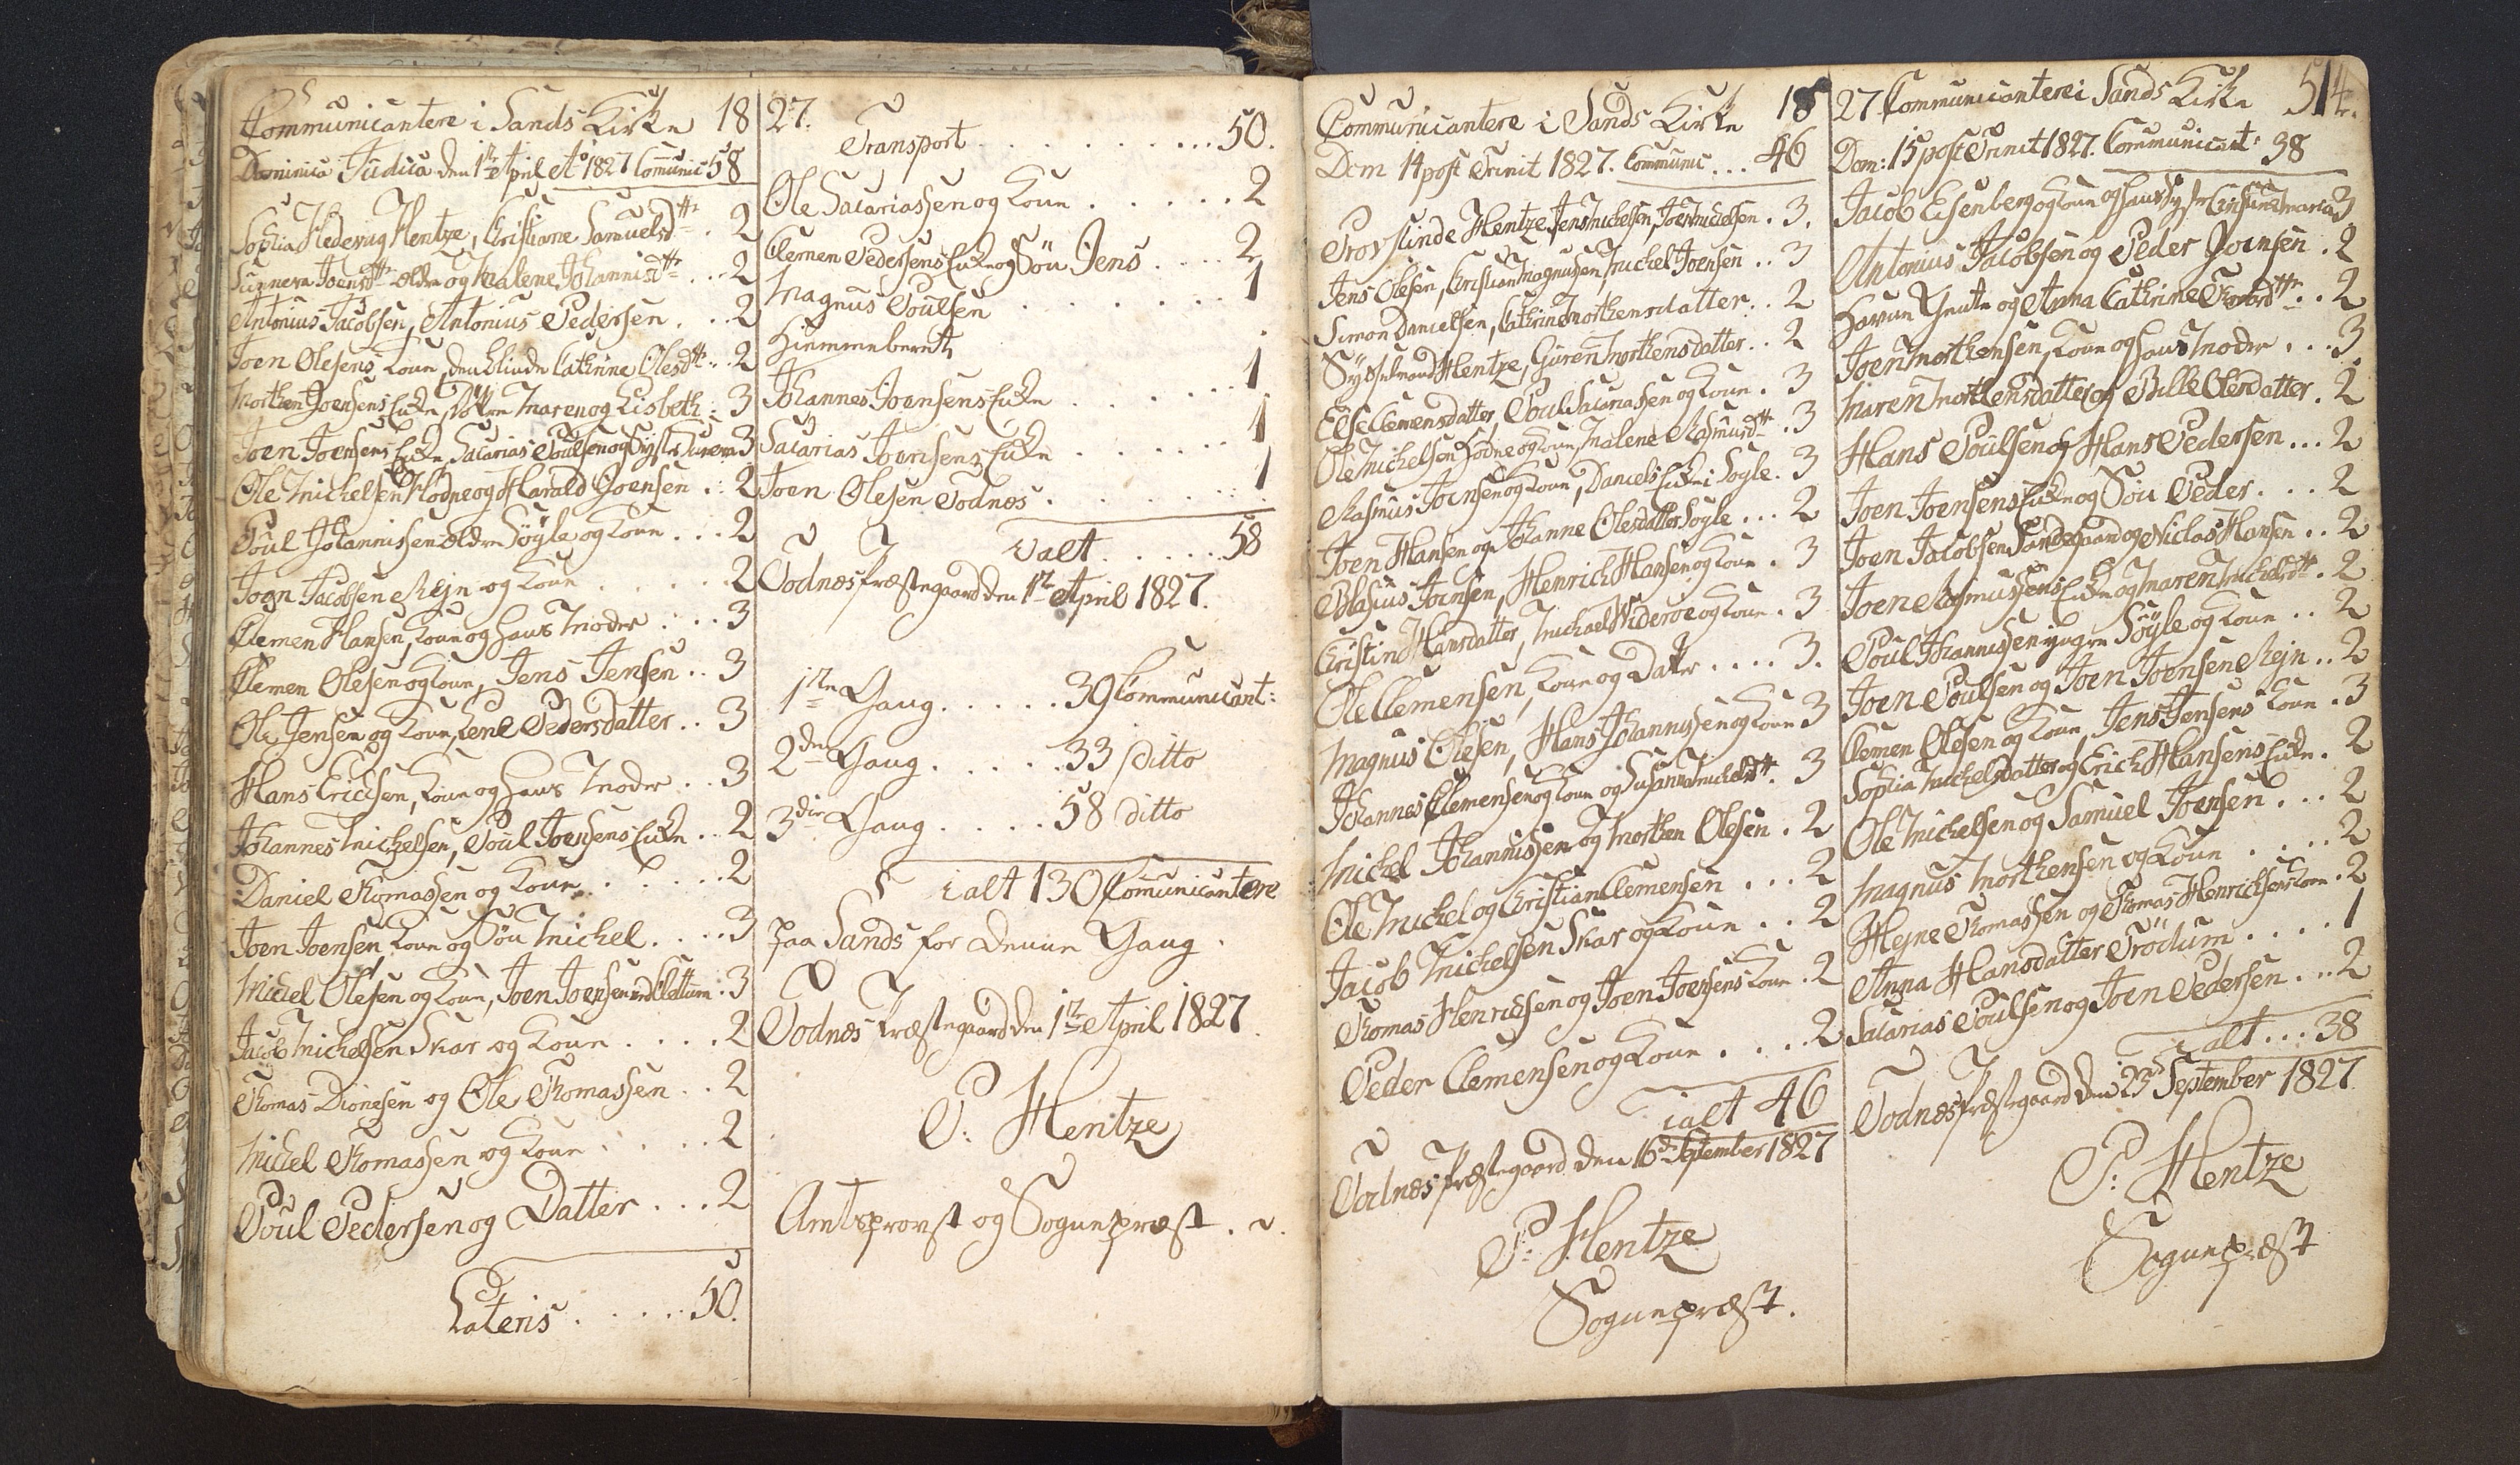 Communicantere i Sands Kirke 18
Dominica Judica den 1te April Ao 1827 Comunic 58
Sophia Hedevig Hentze, Christiane Samuelsdtr . 2
Sunneva Joensdtr ældre og Malene Johannisdtr . . 2
Antonius Jacobsen, Antonius Pedersen . . . 2
Joen Olesens Kone, den blinde Cathrine Olesdtr . . 2
Morthen Joensens Enke, Døttre Maren og Lisbeth . 3
Joen Joensens Enke, Sacarias Poulsen og Syster Sunneva 3
Ole Michelsen Hødne og Harald Joensen . . 2
Poul Johannissen ældre Søyle og Kone . . . 2
Joen Jacobsen Rejn og Kone . . . . 2
Clemen Hansen, Kone og hans Moder . . . 3
Clemen Olesen og Kone, Jens Jensen . . 3
Ole Jensen og Kone, Lene Pedersdatter . . 3
Hans Ericksen, Kone og hans Moder . . 3
Johannes Michelsen, Poul Joensens Enke . . 2
Daniel Thomassen og Kone . . . . 2
Joen Joensen, Kone og Søn Michel . . . 3
Michel Olesen og Kone, Joen Joensen Slettum . 3
Jacob Michelsen Skar og Kone . . . . 2
Thomas Dionesen og Ole Thomassen . . 2
Michel Thomassen og Kone . . . . 2
Poul Pedersen og Datter . . . 2
Lateris . . . . . 50.
27.
Transport . . . . . . . . . 50.
Ole Sacariassen og Kone . . . . . . 2
Clemen Pedersens Enke og Søn Jens . . . . 2
Magnus Poulsen . . . . . . 1
Hiemmeberett
Johannes Joensens Enke . . . . . . 1
Sacarias Joensens Enke . . . . . . 1
Joen Olesen Todnes . . . . . . . 1
Ialt . . . . . 58
Todnes Præstegaard den 1te April 1827.
1ste Gang . . . . . 39 Communicant:
2den Gang . . . . . 33 ditto
3die Gang . . . . . 58 ditto
ialt 130 Comunicantere
paa Sands for denne Gang.
Todnes Præstegaard den 1te April 1827.
P: Hentze
Amtsprovst og Sognepræst.
Communicantere i Sands Kirke 18
Dom 14 post Trinit 1827. Communic . . . 46
Provstinde Hentze, Jens Michelsen, Joen Michelsen . 3.
Jens Olesen, Christian Magnusen, Michel Joensen . . 3
Simon Danielsen, Cathrine Morthensdatter . . 2
Sysselmand Hentze, Guren Morthensdatter . . 2
Else Clemensdatter, Poul Sacariassen og Kone . 3
Ole Michelsen Hødne og Kone, Malene Rasmusdtr . 3
Rasmus Joensen og Kone, Daniels Enke i Søyle . 3
Joen Hansen og Johanne Olesdatter Søyle . . . 2
Blasius Joensen, Henrich Hansen og Kone . 3
Christine Hansdatter, Michael Wideroe og Kone . 3
Ole Clemensen, Kone og Datter . . . . 3.
Magnus Olesen, Hans Johannissen og Kone 3
Johannes Clemensen og Kone og Susanna Michelsdtr . 3
Michel Johannissen og Morthen Olesen . 2
Ole Michel og Christian Clemensen . . . 2
Jacob Michelsen Skar og Kone . . 2
Thomas Henrichsen og Joen Joensens Kone . 2
Peder Clemensen og Kone . . . . 2
ialt 46
Todnes Præstegaard den 16de September 1827
P: Hentze
Sognepræst.
27. Communicantere i Sands Kirke 514.
Dom: 15 post Trinit 1827. Communicant: 38
Jacob Eisenberg og Kone og hans Syster Maria 3
Antonius Jacobsen og Peder Joensen . 2
og Anna Cathrine dtr . . 2
Joen Morthensen, Kone og hans Moder . . . 3
Maren Morthensdatter og Bille Olesdatter . 2
Hans Poulsen og Hans Pedersen . . . 2
Joen Joensens Enke og Søn Peder . . . 2
Joen Jacobsen Sandsgaard og Niclas Hansen . . 2
Joen Rasmussens Enke og Maren Michelsdtr . 2
Poul Johannissen yngre Søyle og Kone . . 2
Joen Poulsen og Joen Joensen Rejn . . 2
Clemen Olesen og Kone, Jens Jensens Kone . 3
Sophia Michelsdatter og Erich Hansens Enke . 2
Ole Michelsen og Samuel Joensen . . . 2
Magnus Morthensen og Kone . . . . 2
Hejne Thomassen og Thomas Henrichsens Kone . 2
Anna Hansdatter Trødum . . . . 1
Sacarias Poulsen og Joen Pedersen . . . 2
Ialt . . . 38
Todnes Præstegaard den 23de September 1827.
P: Hentze
Sognepræst